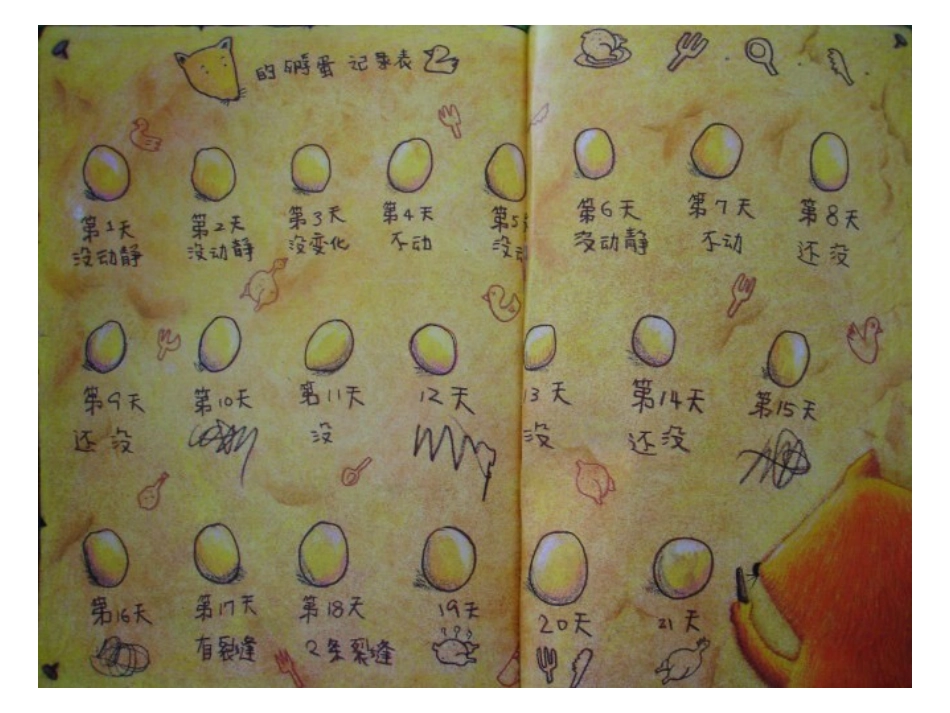 的孵蛋记录表
第1天
没动静
第2天
没动静
第3天
没变化
第4天
不动
第5
没动
第6天
没动静
第7天
不动
第8天
还没
第9天
还没
第10天
第11天
没
12天
13天
没
第14天
还没
第15天
第16天
第17天
有裂缝
第18天
2条裂缝
19天
20天
21天